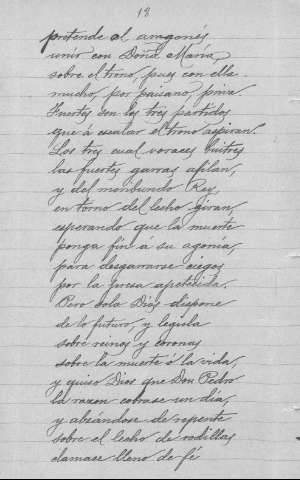 18
pretende al aragonés
unir con Doña María,
sobre el trono, pues con ella
mucho, por paisano, priva.
Fuertes son los tres partidos
que á escalar el trono aspiran.
Los tres cual voraces buitres
las fuertes garras afilan,
y del moribundo Rey,
en torno del lecho giran,
esperando que la muerte
ponga fin á su agonía,
para desgarrarse ciegos
por la presa apetecida.
Pero solo Dios dispone
de lo futuro, y legisla
sobre reinos y coronas
sobre la muerte ó la vida,
y quiso Dios que Don Pedro
la razon cobrase un día,
y alzándose de repente
sobre el lecho de rodillas
clamase lleno de fé